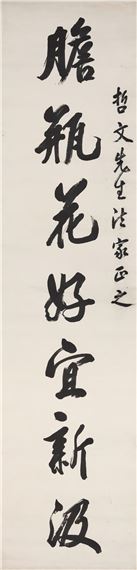 哲文先生法家正之
膽瓶花好宜新汲